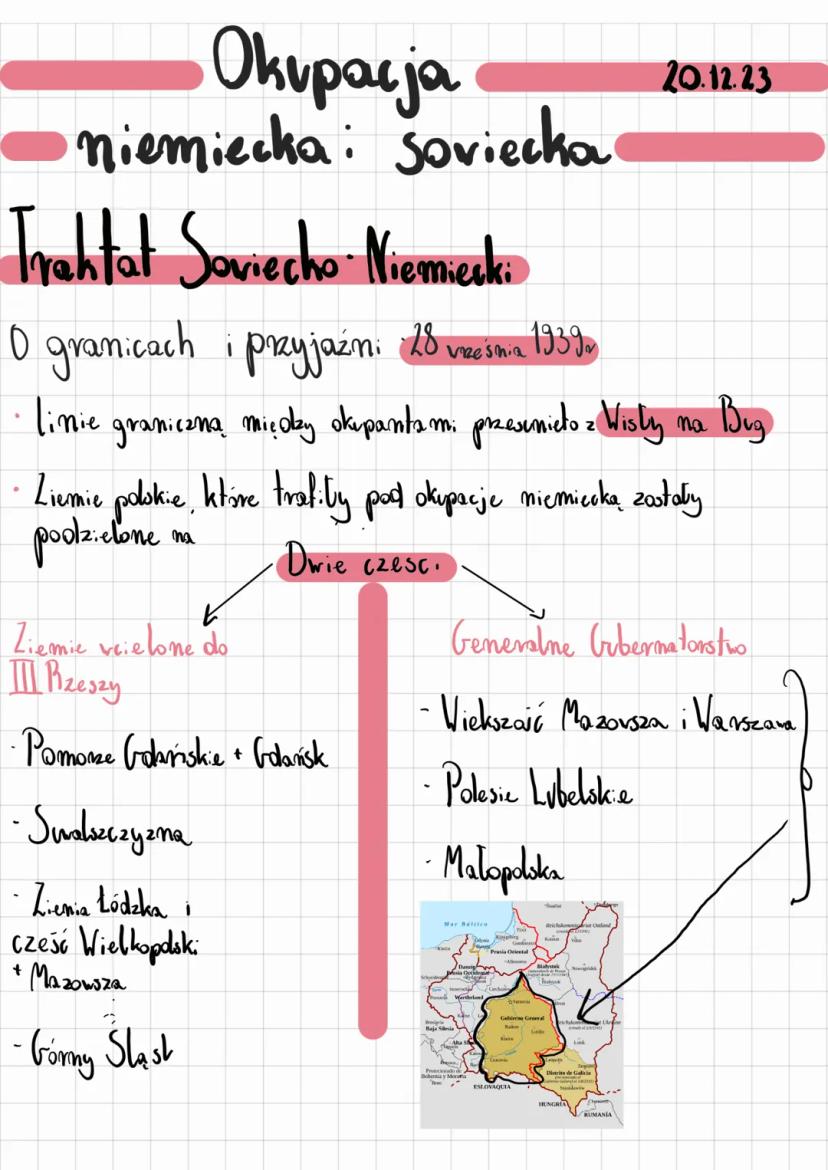 Okupacja
20.12.23
niemiecka i soviecka
Traktat Soviecko-Niemiecki
O granicach i przyjaźni 28 września 1939r
• linie graniczną między okupantami przesunięto z Wisły na Bug
• Ziemie polskie, które trafiły pod okupacje niemiecką zostały
podzielone na
Dwie czesci
Ziemie wcielone do
III Rzeszy
- Pomorze Gdańskie + Gdańsk
- Suwalszczyzna
- Ziemia Łódzka i
cześć Wielkopolski
+ Mazowsza
- Górny Śląsk
Generalne Gubernatorstwo
- Wiekszość Mazowsza i Warszawa
- Polesie Lubelskie
- Małopolska
Mar Báltico
Reichskommissariat Ostland
Prusia Oriental
Danzig
Prusia Occidental
Białystok
Wartheland
Gobierno General
Baja Silesia
Alta
Protectorado de
Bohemia y Moravia
Distrito de Galicia
ESLOVAQUIA
HUNGRÍA
RUMANÍA